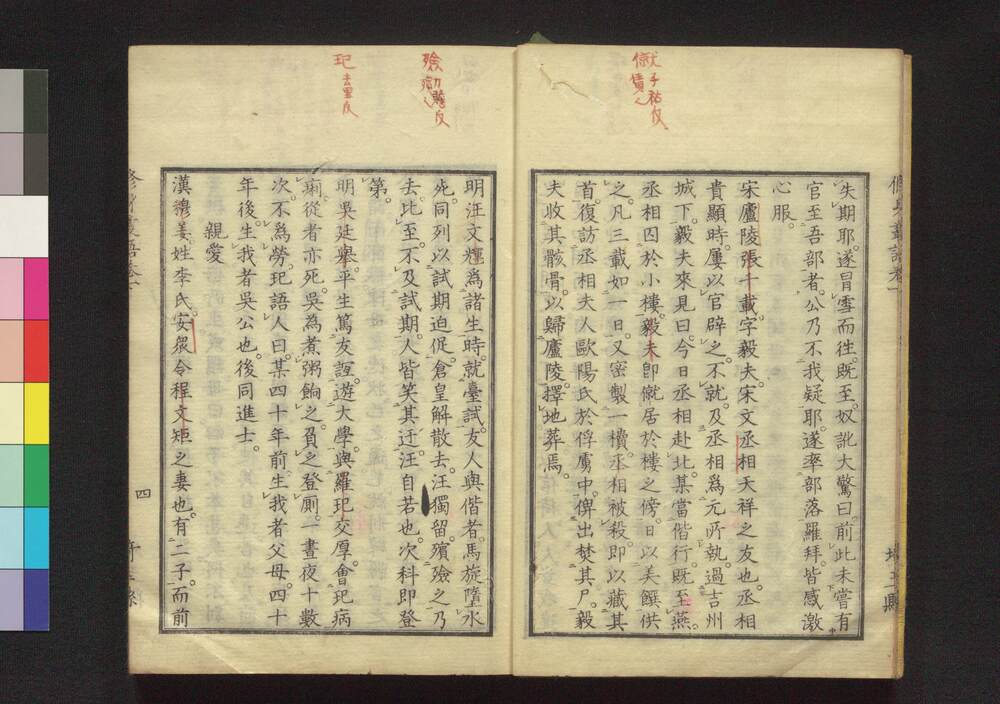 失期耶。遂冒雪而徃。既至。奴訛大驚曰。前此未嘗有
官至吾部者。公乃不我疑耶。遂率部落羅拜。皆感激
心服。
宋廬陵張千載。字毅夫。宋文丞相天祥之友也。丞相
貴顯時。屢以官辟之。不就。及丞相爲元所執。過吉州
城下。毅夫來見曰。今日丞相赴北。某當偕行。既至燕。
丞相囚於小樓。毅夫卽僦居於樓之傍。日以美饌供
之。凡三載如一日。又密製一櫝。丞相被殺。即以藏其
首。復訪丞相夫人歐陽氏於俘虜中。俾出焚其尸。毅
夫收其骸骨。以歸廬陵。擇地葬焉。
明汪文輝爲諸生時。就臺試。友人與偕者。馬旋墮水
死。同列以試期迫促。倉皇解散去。汪獨留。殯殮之乃
去。比至。不及試期。人皆笑其迂。汪自若也。次科即登
第。
明吳廷舉。平生篤友誼。遊大學。與羅玘交厚。會玘病
痢。從者亦死。吳爲煮粥餉之。負之登厠。一晝夜十數
次。不爲勞。玘語人曰。某四十年前生我者父母。四十
年後。生我者吳公也。後同進士。
親愛
漢穆姜。姓李氏。安衆令程文矩之妻也。有二子。而前
四